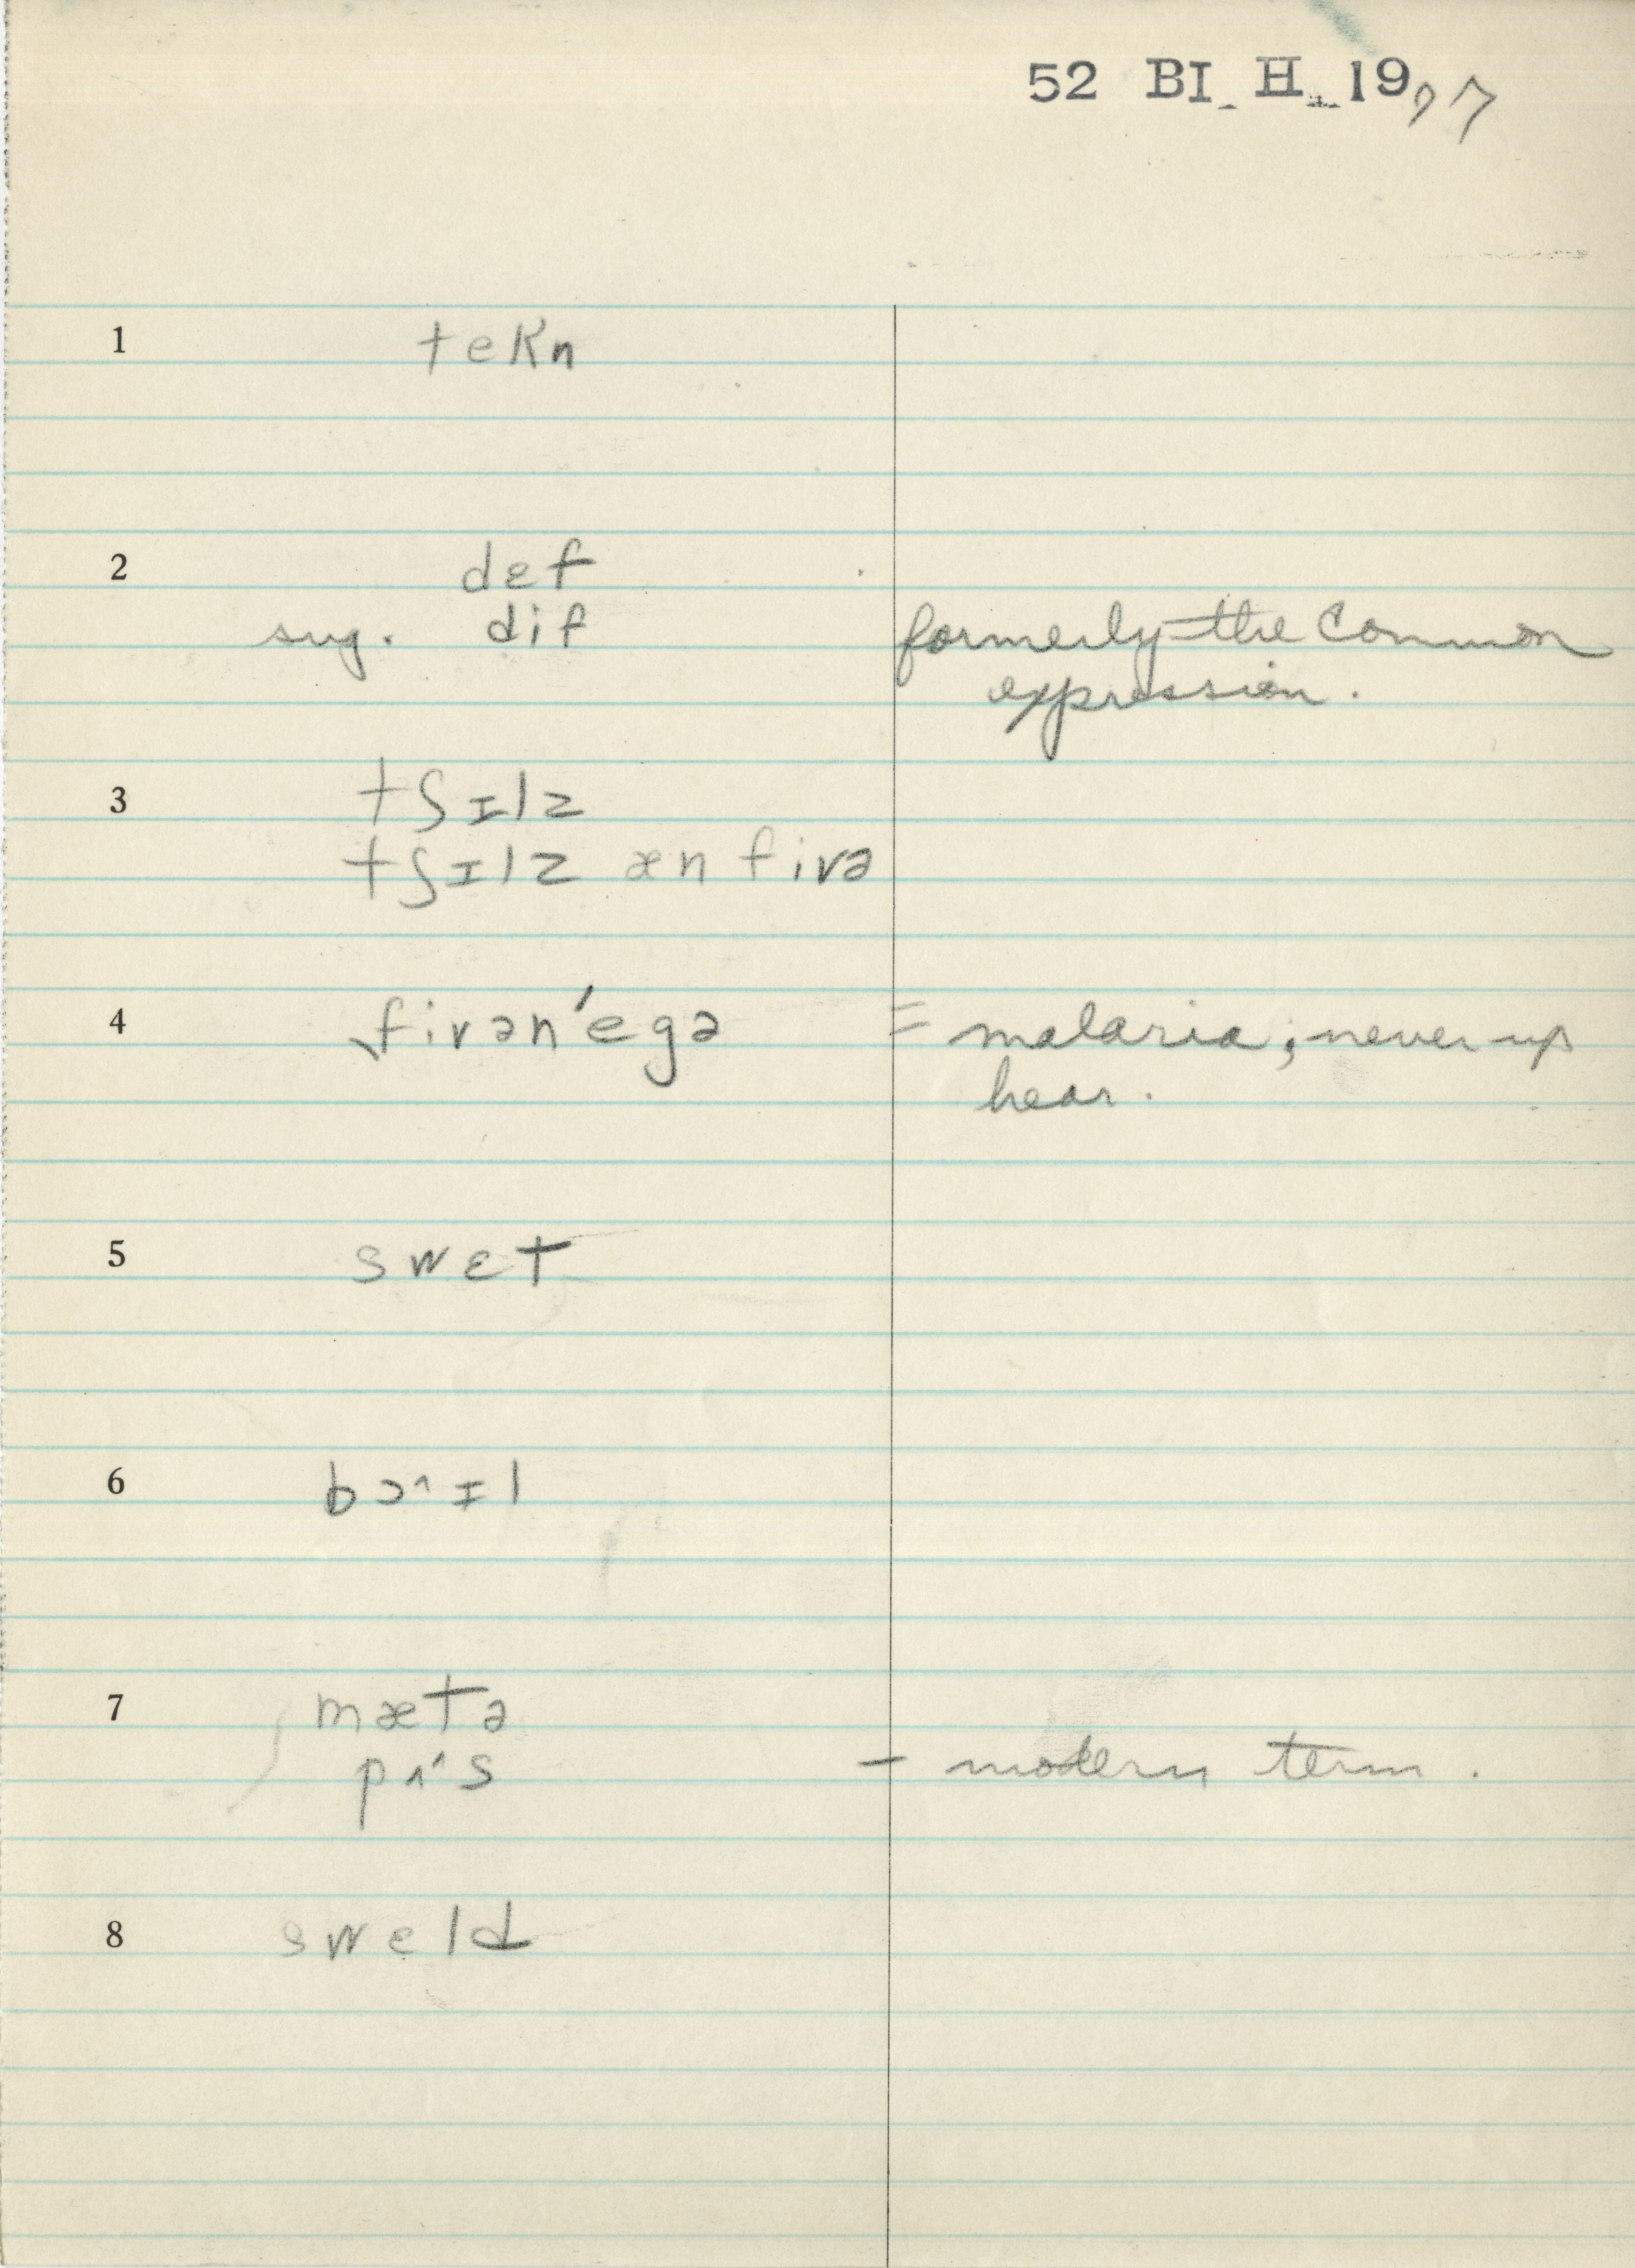 52 BI H 19 97
1 tekn
2 dɛf
sug. dif formerly the common
expression.
3 tʃɪlz
tʃɪlz æn fivə
4 fivən'egə = malaria; never up
hear.
5 swɛt
6 bɔ^ɪl
7 mætə
pʌ's – modern term.
8 sweld